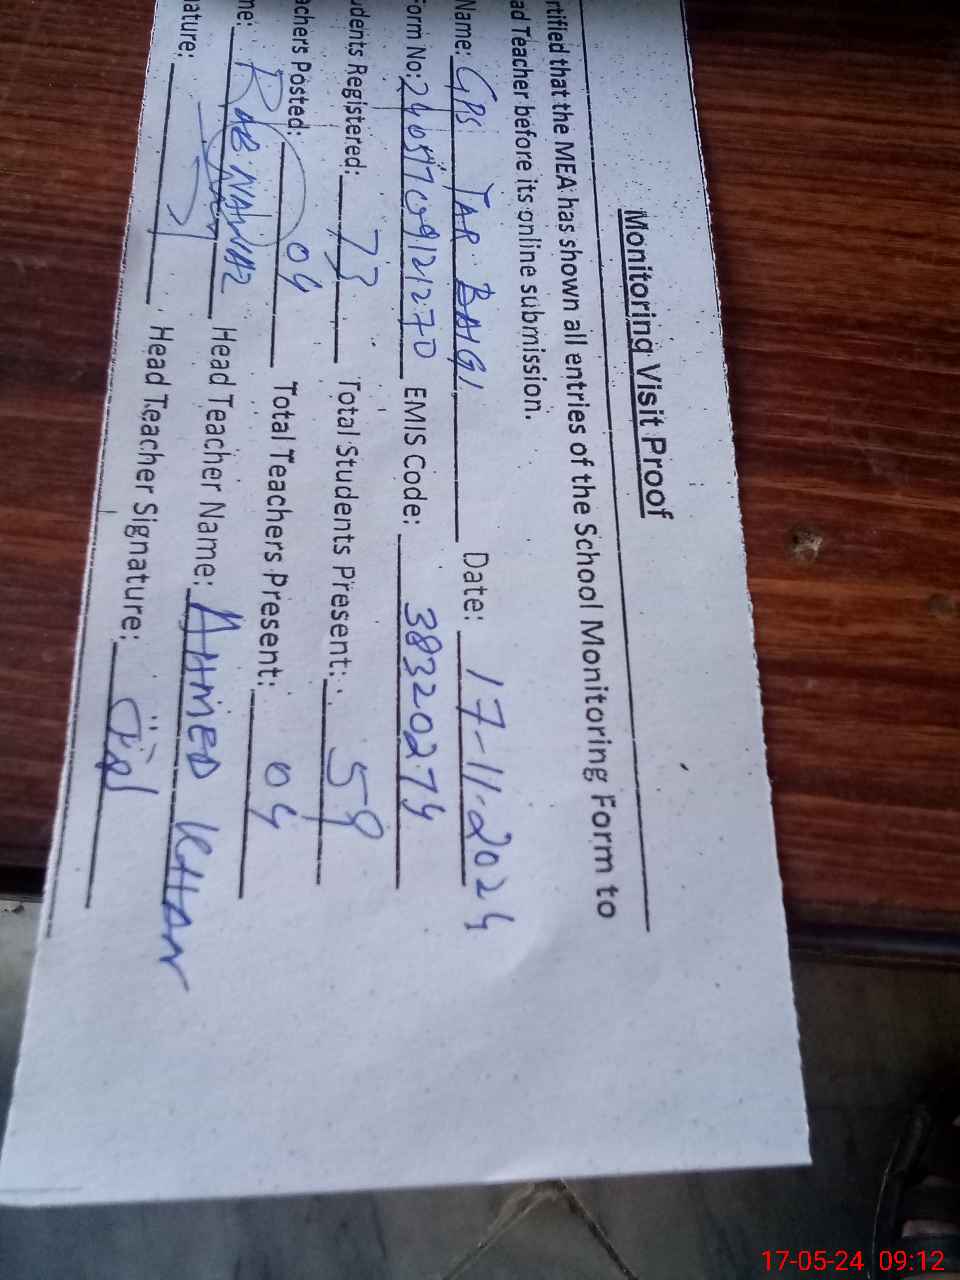 Monitoring Visit Proof
rtified that the MEA has shown all entries of the School Monitoring Form to
ad Teacher before its online submission.
Name: GPS YAR BAIGI Date: 17-11-2024
Form No: EMIS Code: 38320274
udents Registered: 73 Total Students Present: 59
achers Posted: 04 Total Teachers Present: 04
me: RAB NAWAZ Head Teacher Name: AHMED KHAN
nature: Head Teacher Signature:
17-05-24 09:12